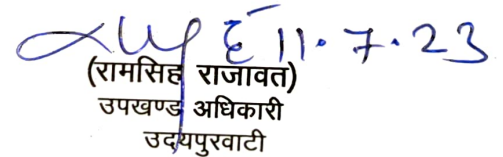 11.7.23
(रामसिंह राजावत)
उपखण्ड अधिकारी
उदयपुरवाटी